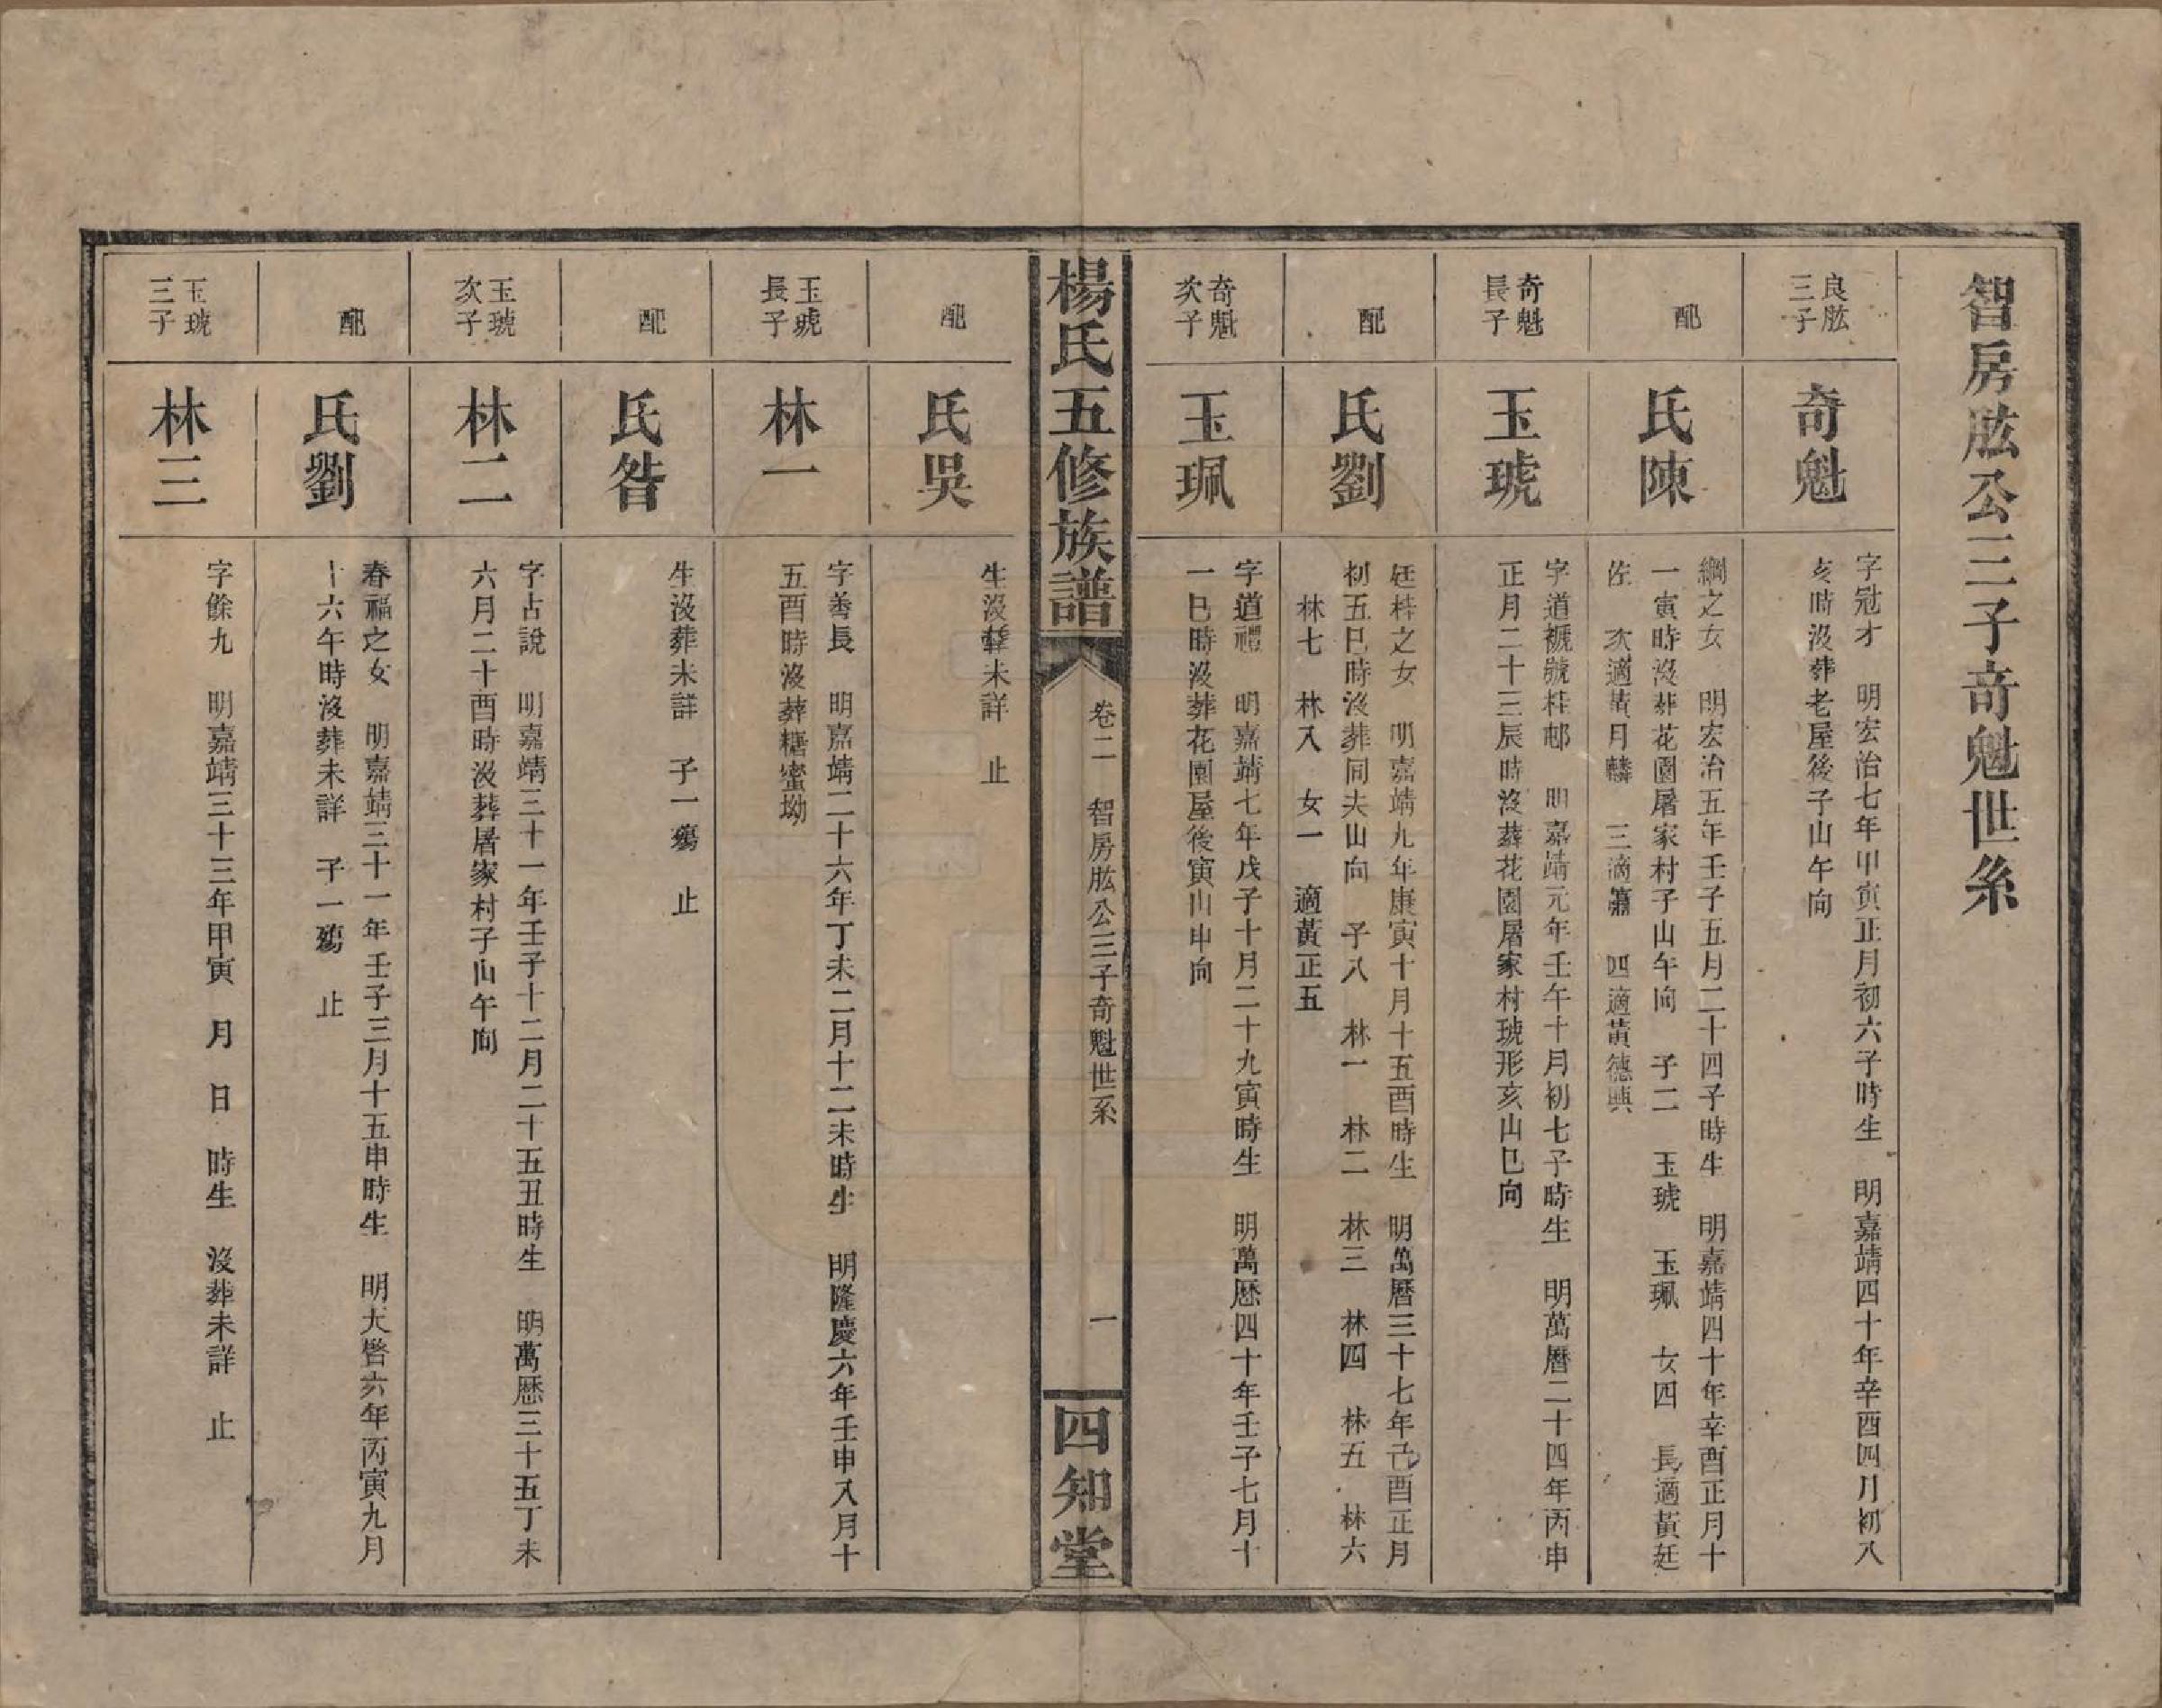 智房肱公三子奇魁世系
良肱
三子
奇魁
字冠才　明宏治七年甲寅正月初六子時生　明嘉靖四十年辛酉四月初八
亥時沒葬老屋後子山午向
配
氏陳
綱之女　明宏治五年壬子五月二十四子時生　明嘉靖四十年辛酉正月十
一寅時沒葬花園屠家村子山午向　子二　玉琥　玉珮　女四　長適黃廷
佐　次適黃月麟　三適蕭　四適黃德興
奇魁
長子
玉琥
字道褫號桂邨　明嘉靖元年壬午十月初七子時生　明萬曆二十四年丙申
正月二十三辰時沒葬花園屠家村琥形亥山巳向
配
氏劉
廷桂之女　明嘉靖九年庚寅十月十五酉時生　明萬曆三十七年己酉正月
初五巳時沒葬同夫山向　子八　林一　林二　林三　林四　林五　林六
林七　林八　女一　適黃正五
奇魁
次子
玉珮
字道禮　明嘉靖七年戊子十月二十九寅時生　明萬歷四十年壬子七月十
一巳時沒葬花園屋後寅山申向
楊氏五修族譜
卷二　智房肱公三子奇魁世系
一
四知堂
配
氏吳
生沒葬未詳　止
玉琥
長子
林一
字善長　明嘉靖二十六年丁未二月十二未時生　明隆慶六年壬申八月十
五酉時沒葬糖蜜坳
配
氏昝
生沒葬未詳　子一殤　止
玉琥
次子
林二
字占說　明嘉靖三十一年壬子十二月二十五丑時生　明萬歷三十五丁未
六月二十酉時沒葬屠家村子山午向
配
氏劉
春福之女　明嘉靖三十一年壬子三月十五申時生　明天啓六年丙寅九月
十六午時沒葬未詳　子一殤　止
玉琥
三子
林三
字餘九　明嘉靖三十三年甲寅　月　日　時生　沒葬未詳　止